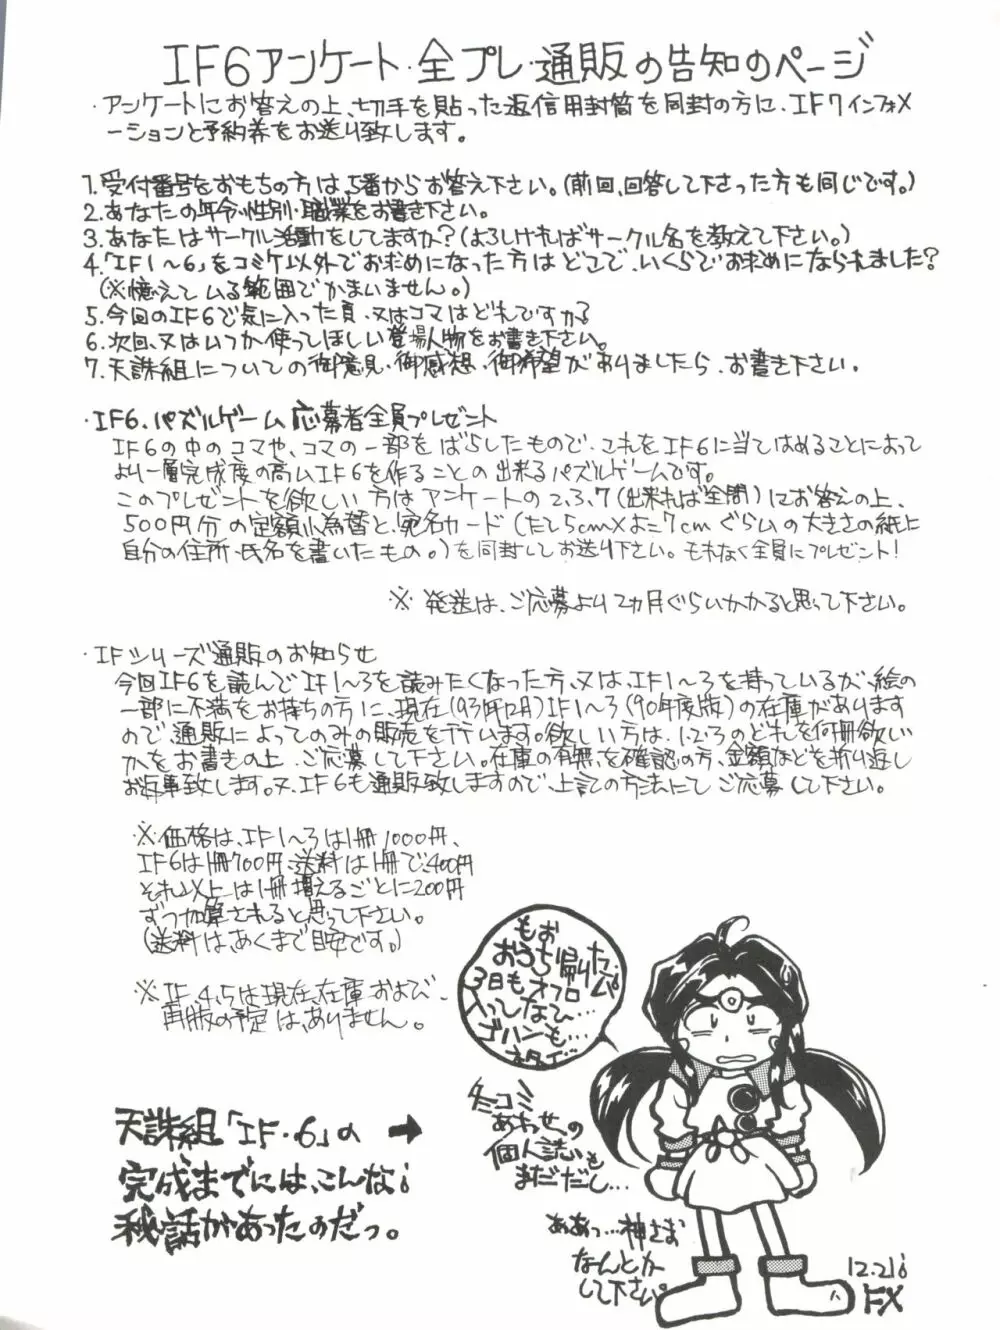 IF6アンケート・全プレ・通販の告知のページ
・アンケートにお答えの上、切手を貼った返信用封筒を同封の方に、IF7インフォメ
ーションと予約券をお送り致します。
1.受付番号をおもちの方は、5番からお答え下さい。(前回、回答して下さった方も同じです。)
2.あなたの年令・性別・職業をお書き下さい。
3.あなたはサークル活動をしてますか?(よろしければサークル名を教えて下さい。)
4.「IF1〜6」をコミケ以外でお求めになった方はどこで、いくらでお求めになられました?
(※憶えている範囲でかまいません。)
5.今回のIF6で気に入った頁、又はコマはどれですか?
6.次回、又はいつか使ってほしい登場人物をお書き下さい。
7.天誅組についての御意見・御感想・御希望がありましたら、お書き下さい。
・IF6、パズルゲーム応募者全員プレゼント
IF6の中のコマや、コマの一部をばらしたもので、これをIF6に当てはめることによって
より一層完成度の高いIF6を作ることの出来るパズルゲームです。
このプレゼントを欲しい方はアンケートの2、3、7(出来れば全問)にお答えの上、
500円分の定額小為替と、宛名カード(たて5cm×よこ7cmぐらいの大きさの紙に
自分の住所・氏名を書いたもの。)を同封してお送り下さい。もれなく全員にプレゼント!
※発送は、ご応募より2ヵ月ぐらいかかると思って下さい。
・IFシリーズ通販のお知らせ
今回IF6を読んでIF1〜3を読みたくなった方、又は、IF1〜3を持っているが、絵の
一部に不満をお持ちの方に、現在(93年12月)IF1〜3(90年度版)の在庫があります
ので、通販によってのみの販売を行います。欲しい方は、1・2・3のどれを何冊欲しい
かをお書きの上、ご応募して下さい。在庫の有無を確認の方、金額などを折り返し
お返事致します。又、IF6も通販致しますので、上記の方法にてご応募して下さい。
※価格は、IF1〜3は1冊1000円、
IF6は1冊700円、送料は1冊で、400円
それ以上は1冊増えるごとに200円
ずつ加算されると思って下さい。
(送料は、あくまで目安です。)
※IF、4、5は現在、在庫および、
再販の予定は、ありません。
もお
おうち帰りたい
3日もオフロ
入ってないひ…
ゴハンも…
冬コミ
あわせの
個人誌も
まだだし…
ああっ…神さま
なんとか
して下さい。
天誅組「IF・6」の →
完成までには、こんな
秘話があったのだっ。
12.21
FX